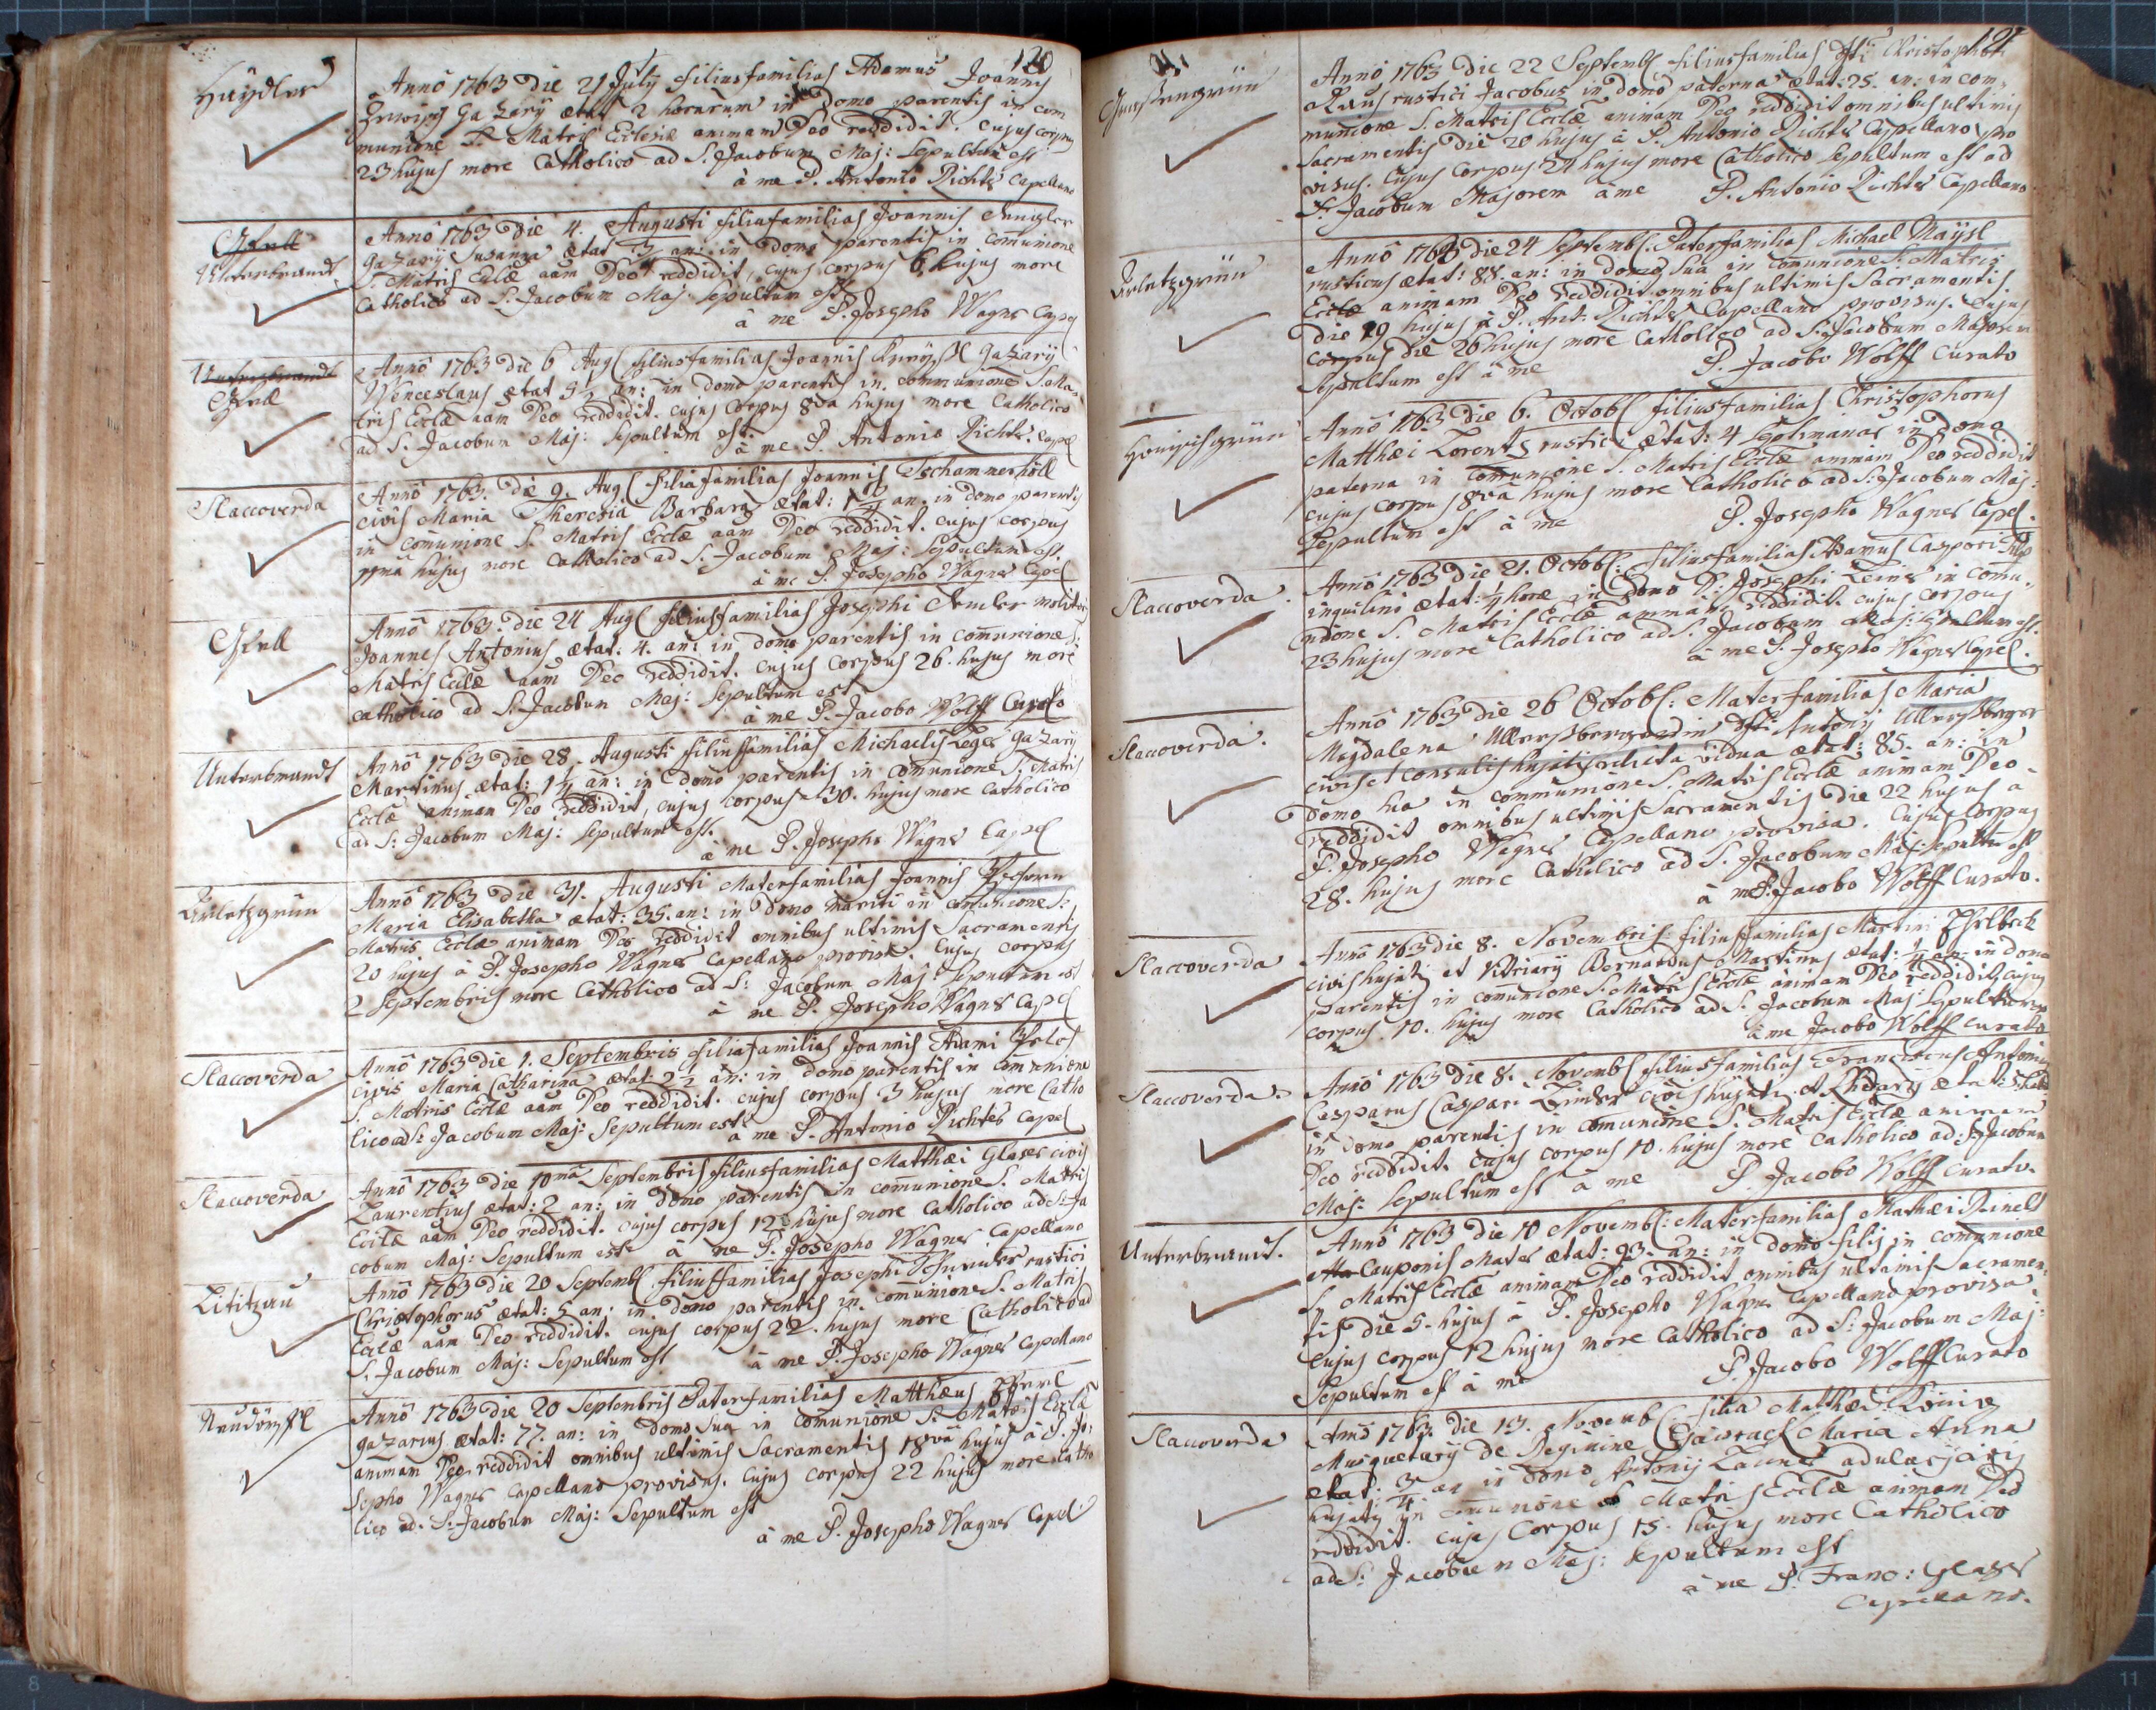 120
Haÿdles
Anno 1763 die 21 July filius familias Adamus Joannis
Gazarÿ ætat 2 horarum in Domo parentis in com
munione S. Matris Ecclesiæ animam Deo reddidit. cujus corpus
23 hujus more Catholico ad S. Jacobum Maj: Sepultum est
à me P. Antonio Richter Capellano
Unterbrandt
Anno 1763 die 4. Augusti filia familias Joannis
Gazarÿ Susanna ætat 3 an: in domo parentis in comunione
S. Matris Eclæ aam Deo reddidit, cujus corpus 6. hujus more
Catholico ad S. Jacobum Maj: Sepultum est
à me P. Josepho Wagner Capel
Unterbrandt
Anno 1763 die 6 Aug filius familias Joannis Gazarÿ
Wenceslaus ætat an: in domo parentis in communione S. Ma
tris Ecclæ aam Deo reddidit. cujus corpus 8va hujus more Catholico
ad S. Jacobum Maj: Sepultum est
à me P. Antonio Richter Capel
Slaccoverda
Anno 1763. die 9. Aug filia familias Joannis Tschammerhöll
civis Maria Theresia Barbara ætat: an. in domo parentis
in comunione S. Matris Ecclæ aam Deo reddidit. cujus corpus
11ma hujus more Catholico ad S. Jacobum Maj: Sepultum est.
à me P. Josepho Wagner Capel
Anno 1763. die 24 Aug filius familias Josephi molitor
Joannes Antonius ætat: 4. an: in domo parentis in comunione S:
Matris Ecclæ aam Deo reddidit. cujus corpus 26. hujus more
catholico ad S. Jacobum Maj: Sepultum est
à me P. Jacobo Wolff Curato
Unterbrandt
Anno 1763 die 28. Augusti filius familias Michaelis Gazarÿ
Martinus ætat: an: in domo parentis in comunione S: Matris
Ecclæ animam Deo reddidit, cujus corpus 30. hujus more Catholico
ad S: Jacobum Maj: Sepultum est.
à me P. Josepho Wagner Capel
Arletzgrün
Anno 1763 die 31. Augusti Materfamilias Joannis
Maria Elisabetha ætat: 35. an: in domo mariti in comunione S:
Matris Ecclæ animam Deo reddidit omnibus ultimis Sacramentis
20 hujus à P. Josepho Wagner Capellano provisa. Cujus corpus
2 Septembris more Catholico ad S: Jacobum Maj: Sepultum est
à me P. Josepho Wagner Capel
Slaccoverda
Anno 1763 die 1. Septembris filia familias Joannis Adami
civis Maria Catharina ætat: 2½ an: in domo parentis in comunione
S. Matris Ecclæ aam Deo reddidit. cujus corpus 3 hujus more Catho
lico ad S: Jacobum Maj: Sepultum est
à me P. Antonio Richter Capel
Slaccoverda
Anno 1763 die 10ma Septembris filius familias Matthæi Glaser civis
Laurentius ætat: 2 an: in domo parentis in comunione S. Matris
Ecclæ aam Deo reddidit. cujus corpus 12 hujus more Catholico ad S: Ja
cobum Maj: Sepultum est à me P. Josepho Wagner Capellano
Lititzau
Anno 1763 die 20 Septemb filius familias Josephi rustici
Christophorus ætat: 5 an: in domo parentis in comunione S. Matris
Ecclæ aam Deo reddidit. cujus corpus 22. hujus more Catholico ad
S. Jacobum Maj: Sepultum est à me P. Josepho Wagner Capellano
Neudörffl
Anno 1763 die 20 Septembris Paterfamilias Matthæus
gazarius ætat: 77. an: in domo sua in comunione S: Matris Ecclæ
animam Deo reddidit omnibus ultimis Sacramentis 18va hujus à P. Jo:
sepho Wagner Capellano provisus. Cujus corpus 22 hujus more catho
lico ad. S: Jacobum Maj: Sepultum est
à me P. Josepho Wagner Capel
121
Anno 1763 die 22 Septemb filius familias Christophori
rustici Jacobus in domo paterna ætat: 25. an: in com
munione S. Matris Ecclæ animam Deo reddidit omnibus ultimis
Sacramentis die 20 hujus à P. Antonio Richter Capellano pro
visus. Cujus corpus 24 hujus more Catholico Sepultum est ad
S. Jacobum Majorem à me P. Antonio Richter Capellano
Arletzgrün
Anno 1763 die 24 Septemb: Paterfamilias Michael Maÿsl
rusticus ætat: 88. an: in domo sua in comunione S. Matris
Ecclæ animam Deo reddidit omnibus ultimis Sacramentis
die 19 hujus à P. Ant: Richter Capellano provisus. Cujus
corpus die 26 hujus more Catholico ad S: Jacobum Majorem
Sepultum est à me P. Jacobo Wolff Curato
Honigsgrün
Anno 1763 die 6. Octob filius familias Christophorus
Matthæi Lorentz rustici ætat: 4 septimanas in domo
paterna in Comunione S. Matris Ecclæ animam Deo reddidit
cujus corpus 8va hujus more Catholico ad S: Jacobum Maj:
Sepultum est à me P. Josepho Wagner Capel.
Slaccoverda.
Anno 1763 die 21. Octob: filius familias Adamus Caspari
inquilini ætat: horæ in Domo Josephi in comu
nione S. Matris Ecclæ animam reddidit. cujus corpus
23 hujus more Catholico ad S. Jacobum Maj: Sepultum est.
à me P. Josepho Wagner Capel.
Slaccoverda.
Anno 1763 die 26 Octob: Materfamilias Maria
Magdalena Ullersbergerin Antony Ullersberger
civis et consulis hujatis relicta vidua ætat: 85. an: in
domo sua in communione S. Matris Ecclæ animam Deo
reddidit omnibus ultimis Sacramentis die 22 hujus à
P. Josepho Wagner Capellano provisa. Cujus Corpus
28. hujus more Catholico ad S. Jacobum Maj: Sepultu est
à me P. Jacobo Wolff Curato.
Slaccoverda
Anno 1763 die 8. Novembris filius familias Martini
civis hujatis et Vitriary Bernardus Martinus ætat: an: in domo
parentis in comunione S. Matris Ecclæ animam Deo reddidit, cujus
corpus 10. hujus more Catholico ad S. Jacobum Maj: Sepultum
à me Jacobo Wolff curato
Slaccoverda.
Anno 1763 die 8. Novemb filius familias Franciscus Antonius
Casparus Caspari civis hujatis et ætat:
in domo parentis in comunione S. Matris Ecclæ animam
Deo reddidit. cujus corpus 10. hujus more Catholico ad S: Jacobum
Maj: Sepultum est à me P. Jacobo Wolff curato.
Unterbrandt.
Anno 1763 die 10 Novemb: Materfamilias Mathæi Reinelt
Cauponis Mater ætat: 93. an: in domo filij in comunione
S. Matris Ecclæ animam Deo reddidit omnibus ultimis Sacramen
tis die 5. hujus à P. Josepho Wagner Capellano provisa
Cujus corpus 12 hujus more Catholico ad S: Jacobum Maj:
Sepultum est à me P. Jacobo Wolff Curato
Slaccoverda
Anno 1763. die 13. Novemb: filia Mathæi König
Musquetarÿ de Regimine Maria Anna
ætat: ¾ an in domo Antonij
hujatis in comunione S Matris Ecclæ animam Deo
reddidit. cujus Corpus 15. hujus more Catholico
ad S: Jacobum Maj: sepultum est
à me P. Franc: Glaser
Capellano.